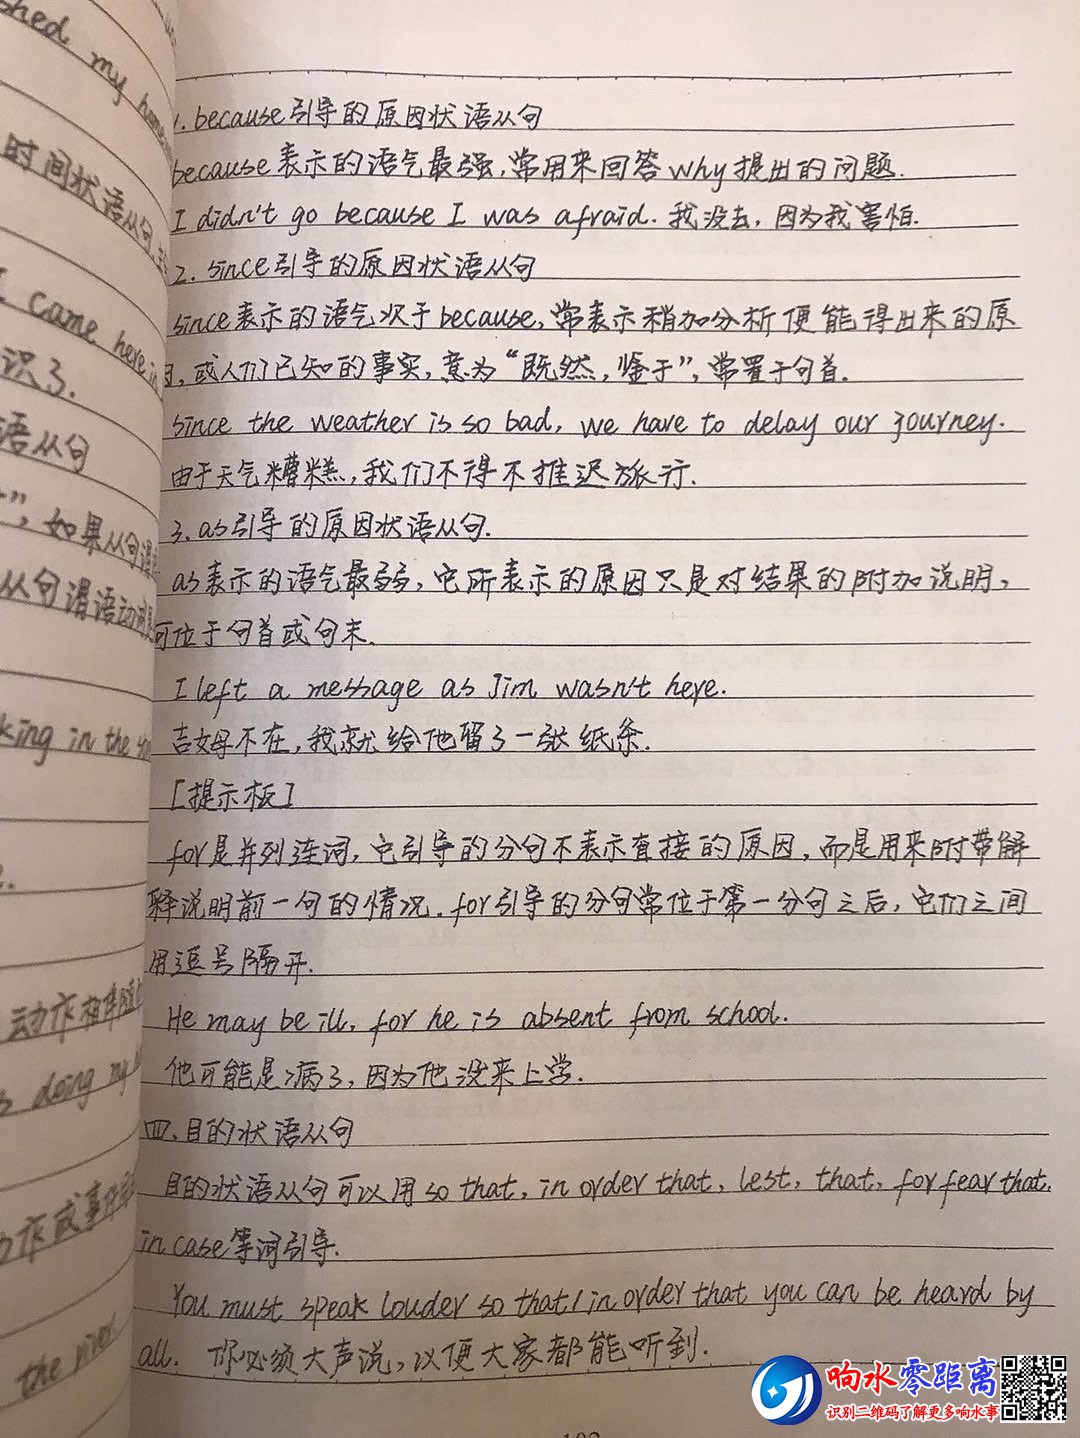 shed my home
时间状语从句,
I came here
识了.
语从句
”,如果从句谓
从句谓语动
king in the
动作相伴随
s doing my
动作或事件
the river
1. because引导的原因状语从句
because表示的语气最强,常用来回答why提出的问题.
I didn't go because I was afraid. 我没去,因为我害怕.
2. since引导的原因状语从句
since表示的语气次于because,常表示稍加分析便能得出来的原
因,或人们已知的事实,意为“既然,鉴于”,常置于句首.
since the weather is so bad, we have to delay our journey.
由于天气糟糕,我们不得不推迟旅行.
3. as引导的原因状语从句.
as表示的语气最弱,它所表示的原因只是对结果的附加说明,
可位于句首或句末.
I left a message as Jim wasn't here.
吉姆不在,我就给他留了一张纸条.
[提示板]
for是并列连词,它引导的分句不表示直接的原因,而是用来附带解
释说明前一句的情况.for引导的分句常位于第一分句之后,它们之间
用逗号隔开.
He may be ill, for he is absent from school.
他可能是病了,因为他没来上学.
四.目的状语从句
目的状语从句可以用so that, in order that, lest, that, for fear that,
in case等词引导.
You must speak louder so that/in order that you can be heard by
all. 你必须大声说,以便大家都能听到.
响水零距离
识别二维码了解更多响水事